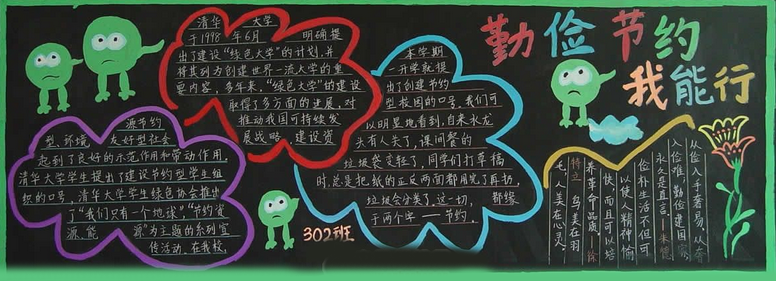 勤俭节约
我能行
清华 大学
于1998 年6月 明确提
出了建设“绿色大学”的计划,并
将其列为创建世界一流大学的重
要内容,多年来,“绿色大学”的建设
取得了多方面的进展,对
推动我国可持续发
展战略 建设资
源节约
型、环境 友好型社会
起到了良好的示范作用和带动作用.
清华大学学生提出了建设节约型学生组
织的口号,清华大学学生绿色协会推出
了“我们只有一个地球”,“节约资
源、能 源”为主题的系列宣
传活动.在我校,
本学期
一开学就提
出了创建节约
型校园的口号,我们可
以明显地看到,自来水龙
头有人关了,课间餐的
垃圾袋变轻了,同学们打草稿
时,总是把纸的正反两面都用完了再扔,
垃圾会分类了,这一切, 都缘
于两个字——节约.
302班
从俭入手奢易.从奢
入俭难,勤俭建国家,
永久是真言——朱德
俭朴生活不但可
以使人精神愉
快,而且可以培
养革命品质——徐
特立 鸟美在羽
毛,人美在心灵.